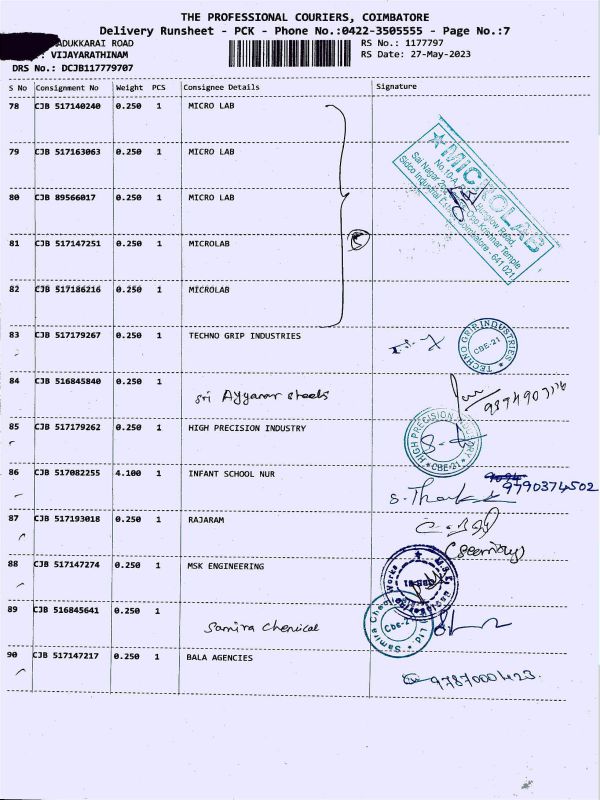 THE PROFESSIONAL COURIERS, COIMBATORE
Delivery Runsheet - PCK - Phone No.:0422-3505555 - Page No.:7
ADUKKARAI ROAD RS No.: 1177797
: VIJAYARATHINAM RS Date: 27-May-2023
DRS No.: DCJB117779707
S No Consignment No Weight PCS Consignee Details Signature
78 CJB 517140240 0.250 1 MICRO LAB
79 CJB 517163063 0.250 1 MICRO LAB
80 CJB 89566017 0.250 1 MICRO LAB
81 CJB 517147251 0.250 1 MICROLAB
82 CJB 517186216 0.250 1 MICROLAB
★ MICROLAB
No.10-A, Bunglow Road,
Sai Nagar Opp Krishnar Temple
Sidco Industrial Coimbatore - 641 021
83 CJB 517179267 0.250 1 TECHNO GRIP INDUSTRIES
TECHNO GRIP INDUSTRIES ★
CBE-21
84 CJB 516845840 0.250 1
Sri Ayyanar Steels
85 CJB 517179262 0.250 1 HIGH PRECISION INDUSTRY
HIGH PRECISION INDUSTRY
★ CBE-21 ★
86 CJB 517082255 4.100 1 INFANT SCHOOL NUR
9790374502
87 CJB 517193018 0.250 1 RAJARAM
88 CJB 517147274 0.250 1 MSK ENGINEERING
89 CJB 516845641 0.250 1
Samira Chemical
Samira
CBE-21
90 CJB 517147217 0.250 1 BALA AGENCIES
9787000423.